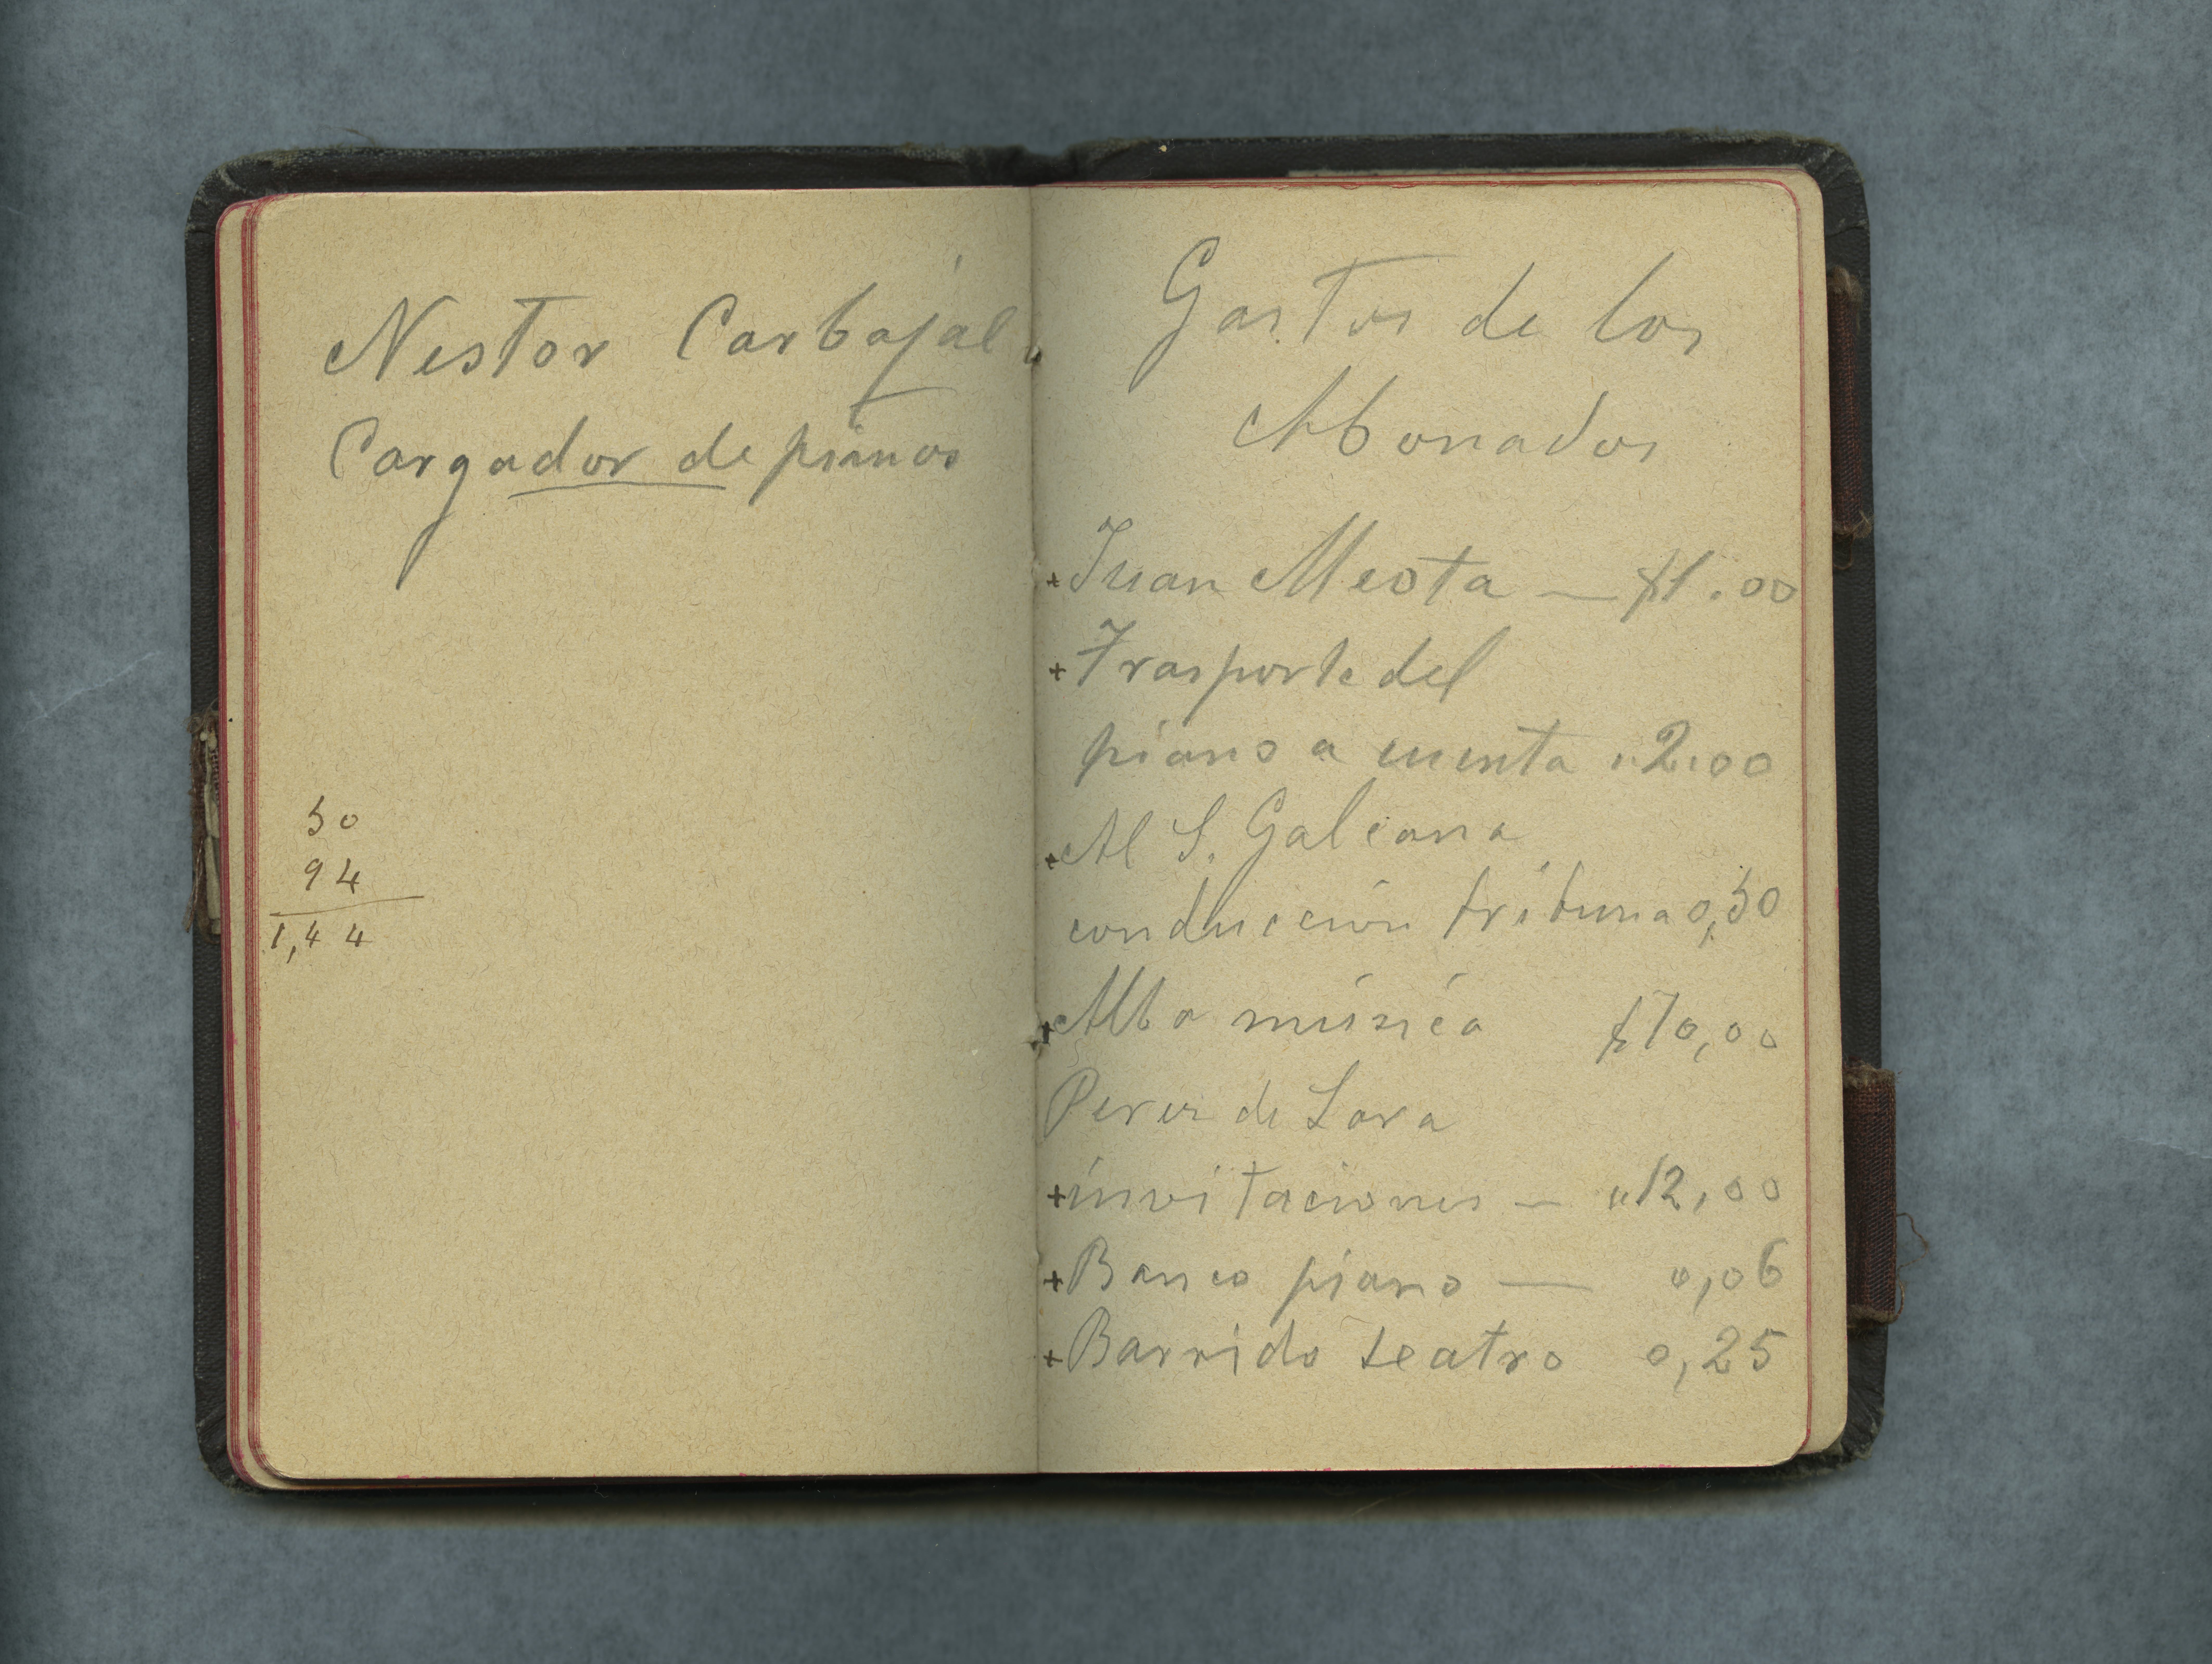 Nestor Carbajal
Cargador de pianos
50
94
1,44
Gastos de los
Abonados
+ Juan Meota — $1.00
+ Trasporte del
piano a cuenta " 2.00
+ Al S. Galeana
conducción tribuna 0,50
+ Alba música $10,00
Perez de Lara
+ invitaciones — " 12,00
+ Banco piano — 0,06
+ Barrido teatro 0,25